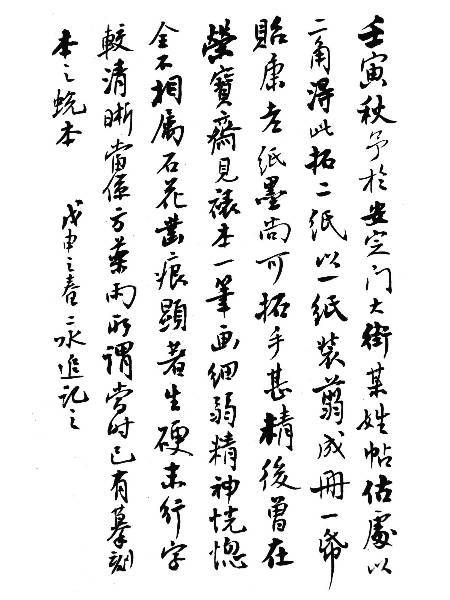 壬寅秋予於安定门大街某姓帖估處以
二角得此拓二纸以一纸装翦成冊一帋
貽康老纸墨尚可拓手甚精後曾在
榮寳齋見裱本一筆画细弱精神恍惚
全不相屬石花凿痕顯著生硬末行字
較清晰當係方藥雨所謂當时已有摹刻
本之蜕本 戊申之春二永追記之